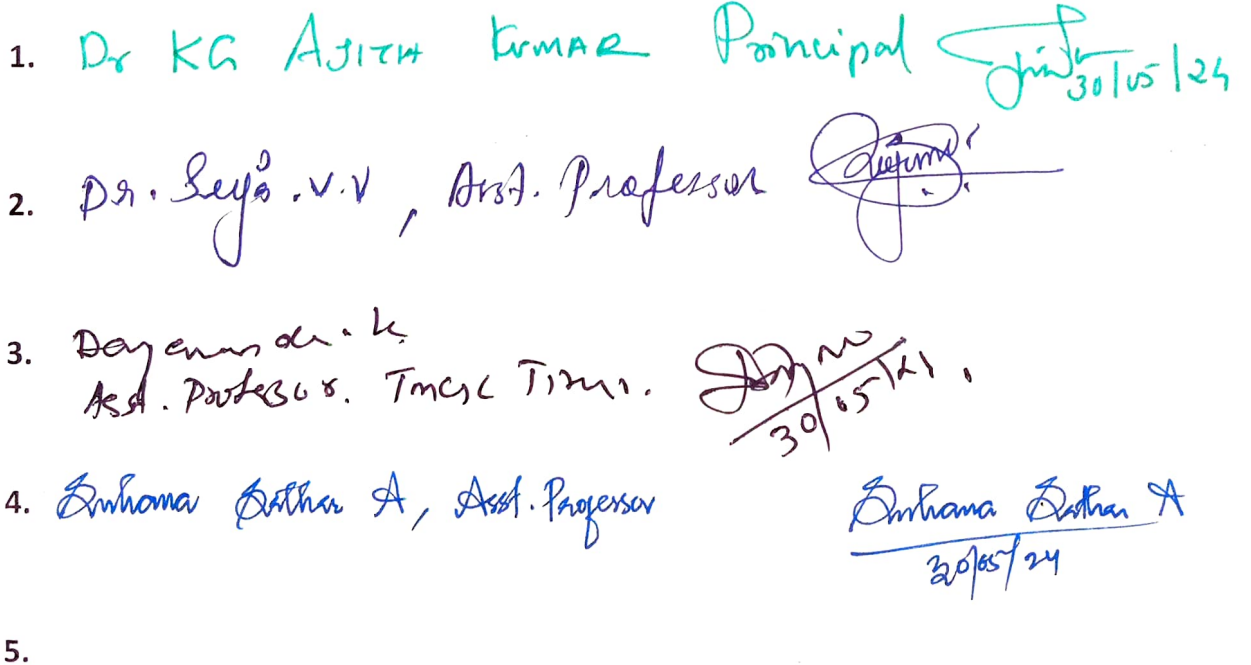 1. Dr KG AJITH KUMAR Principal
30/05/24
2. Dr. Leyo .V.V , Asst. Professor
3. Dayananda . k
Asst. Professor. TMGC Tirur.
30/05/24.
4. Suhana Sathar A, Asst. Professor Suhana Sathar A
30/05/24
5.